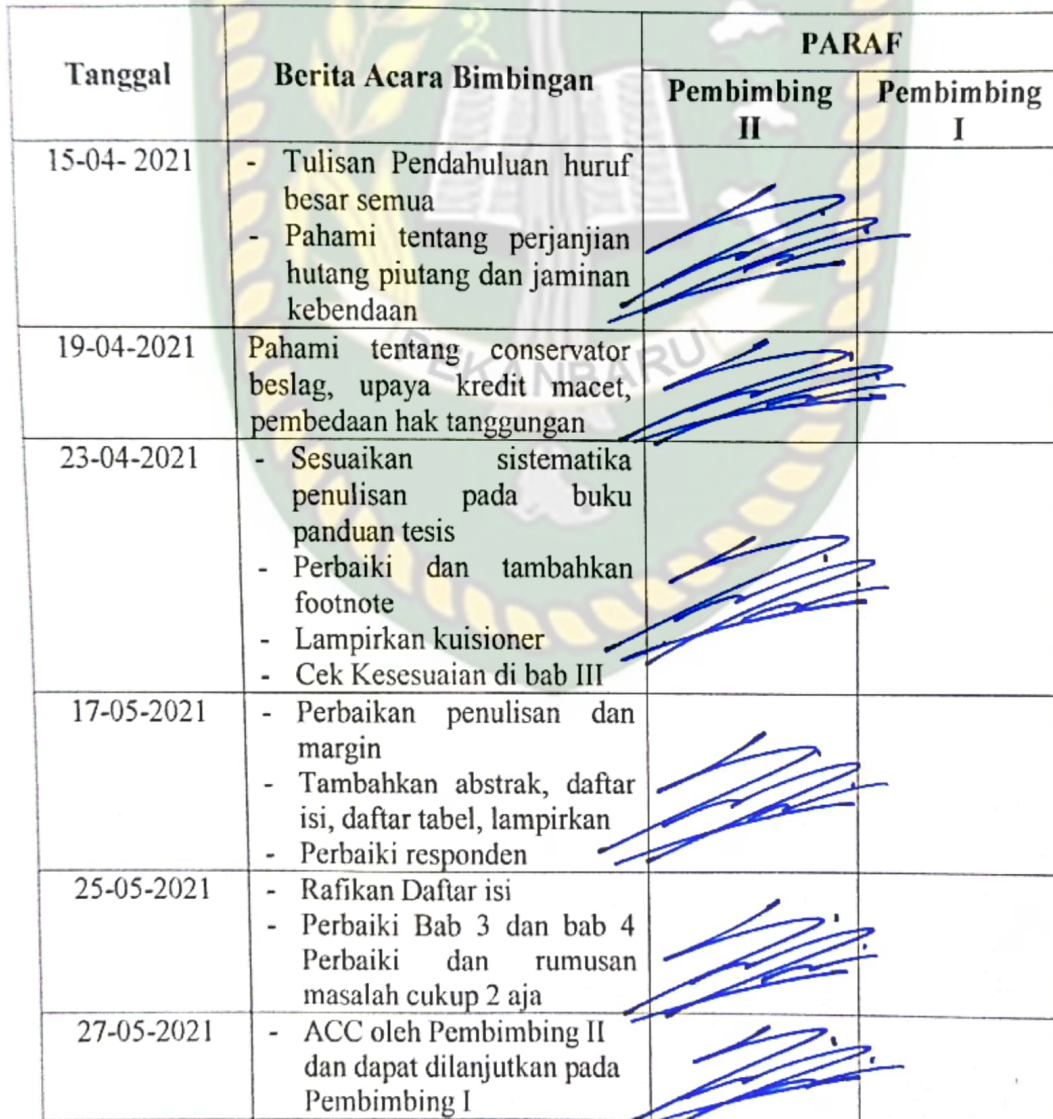 PARAF
Tanggal
Berita Acara Bimbingan
Pembimbing II
Pembimbing I
15-04- 2021
- Tulisan Pendahuluan huruf
besar semua
- Pahami tentang perjanjian
hutang piutang dan jaminan
kebendaan
19-04-2021
Pahami tentang conservator
beslag, upaya kredit macet,
pembedaan hak tanggungan
23-04-2021
- Sesuaikan sistematika
penulisan pada buku
panduan tesis
- Perbaiki dan tambahkan
footnote
- Lampirkan kuisioner
- Cek Kesesuaian di bab III
17-05-2021
- Perbaikan penulisan dan
margin
- Tambahkan abstrak, daftar
isi, daftar tabel, lampirkan
- Perbaiki responden
25-05-2021
- Rafikan Daftar isi
- Perbaiki Bab 3 dan bab 4
Perbaiki dan rumusan
masalah cukup 2 aja
27-05-2021
- ACC oleh Pembimbing II
dan dapat dilanjutkan pada
Pembimbing I
PEKANBARU